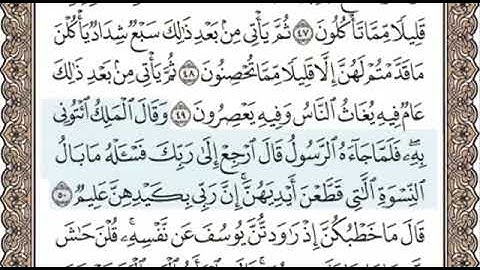 قَلِيلًا مِّمَّا تَأْكُلُونَ ٤٧ ثُمَّ يَأْتِي مِنۢ بَعْدِ ذَٰلِكَ سَبْعٌ شِدَادٌ يَأْكُلْنَ
مَا قَدَّمْتُمْ لَهُنَّ إِلَّا قَلِيلًا مِّمَّا تُحْصِنُونَ ٤٨ ثُمَّ يَأْتِي مِنۢ بَعْدِ ذَٰلِكَ
عَامٌ فِيهِ يُغَاثُ ٱلنَّاسُ وَفِيهِ يَعْصِرُونَ ٤٩ وَقَالَ ٱلْمَلِكُ ٱئْتُونِي
بِهِۦ ۖ فَلَمَّا جَآءَهُ ٱلرَّسُولُ قَالَ ٱرْجِعْ إِلَىٰ رَبِّكَ فَسْـَٔلْهُ مَا بَالُ
ٱلنِّسْوَةِ ٱلَّٰتِي قَطَّعْنَ أَيْدِيَهُنَّ ۚ إِنَّ رَبِّي بِكَيْدِهِنَّ عَلِيمٌ ٥٠
قَالَ مَا خَطْبُكُنَّ إِذْ رَٰوَدتُّنَّ يُوسُفَ عَن نَّفْسِهِۦ ۚ قُلْنَ حَٰشَ